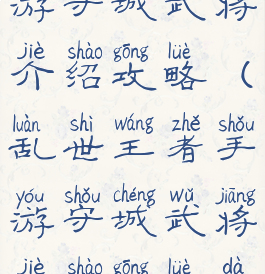 游守城武将
jiè shào gōng lüè
介绍攻略（
luàn shì wáng zhě shǒu
乱世王者手
yóu shǒu chéng wǔ jiāng
游守城武将
jiè shào gōng lüè dà